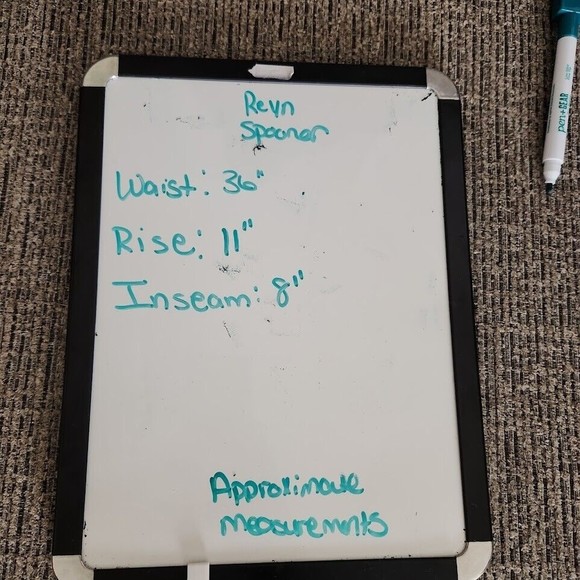 Reyn
Spooner
Waist: 36"
Rise: 11"
Inseam: 8"
Approximate
measurements
pen+GEAR